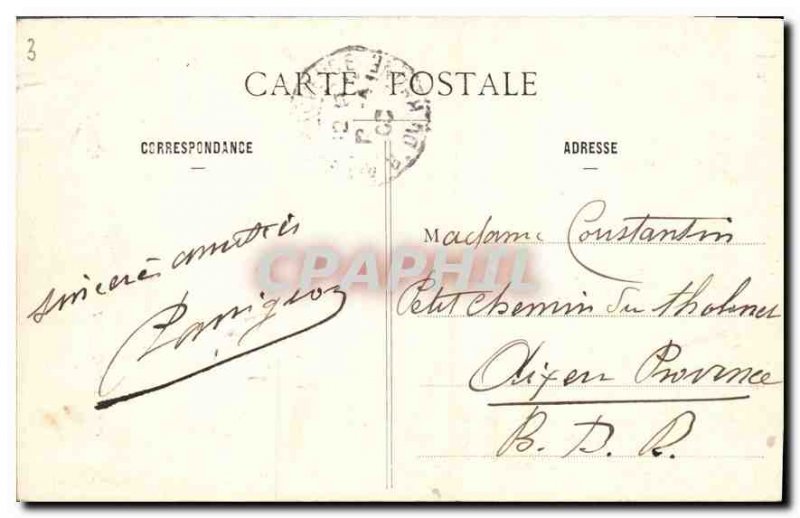 3
CARTE POSTALE
CORRESPONDANCE
ADRESSE
sincères amitiés
Madame Constantin
Petit chemin du tholonet
Aix en Provence
B. D. R.
CPAPHIL